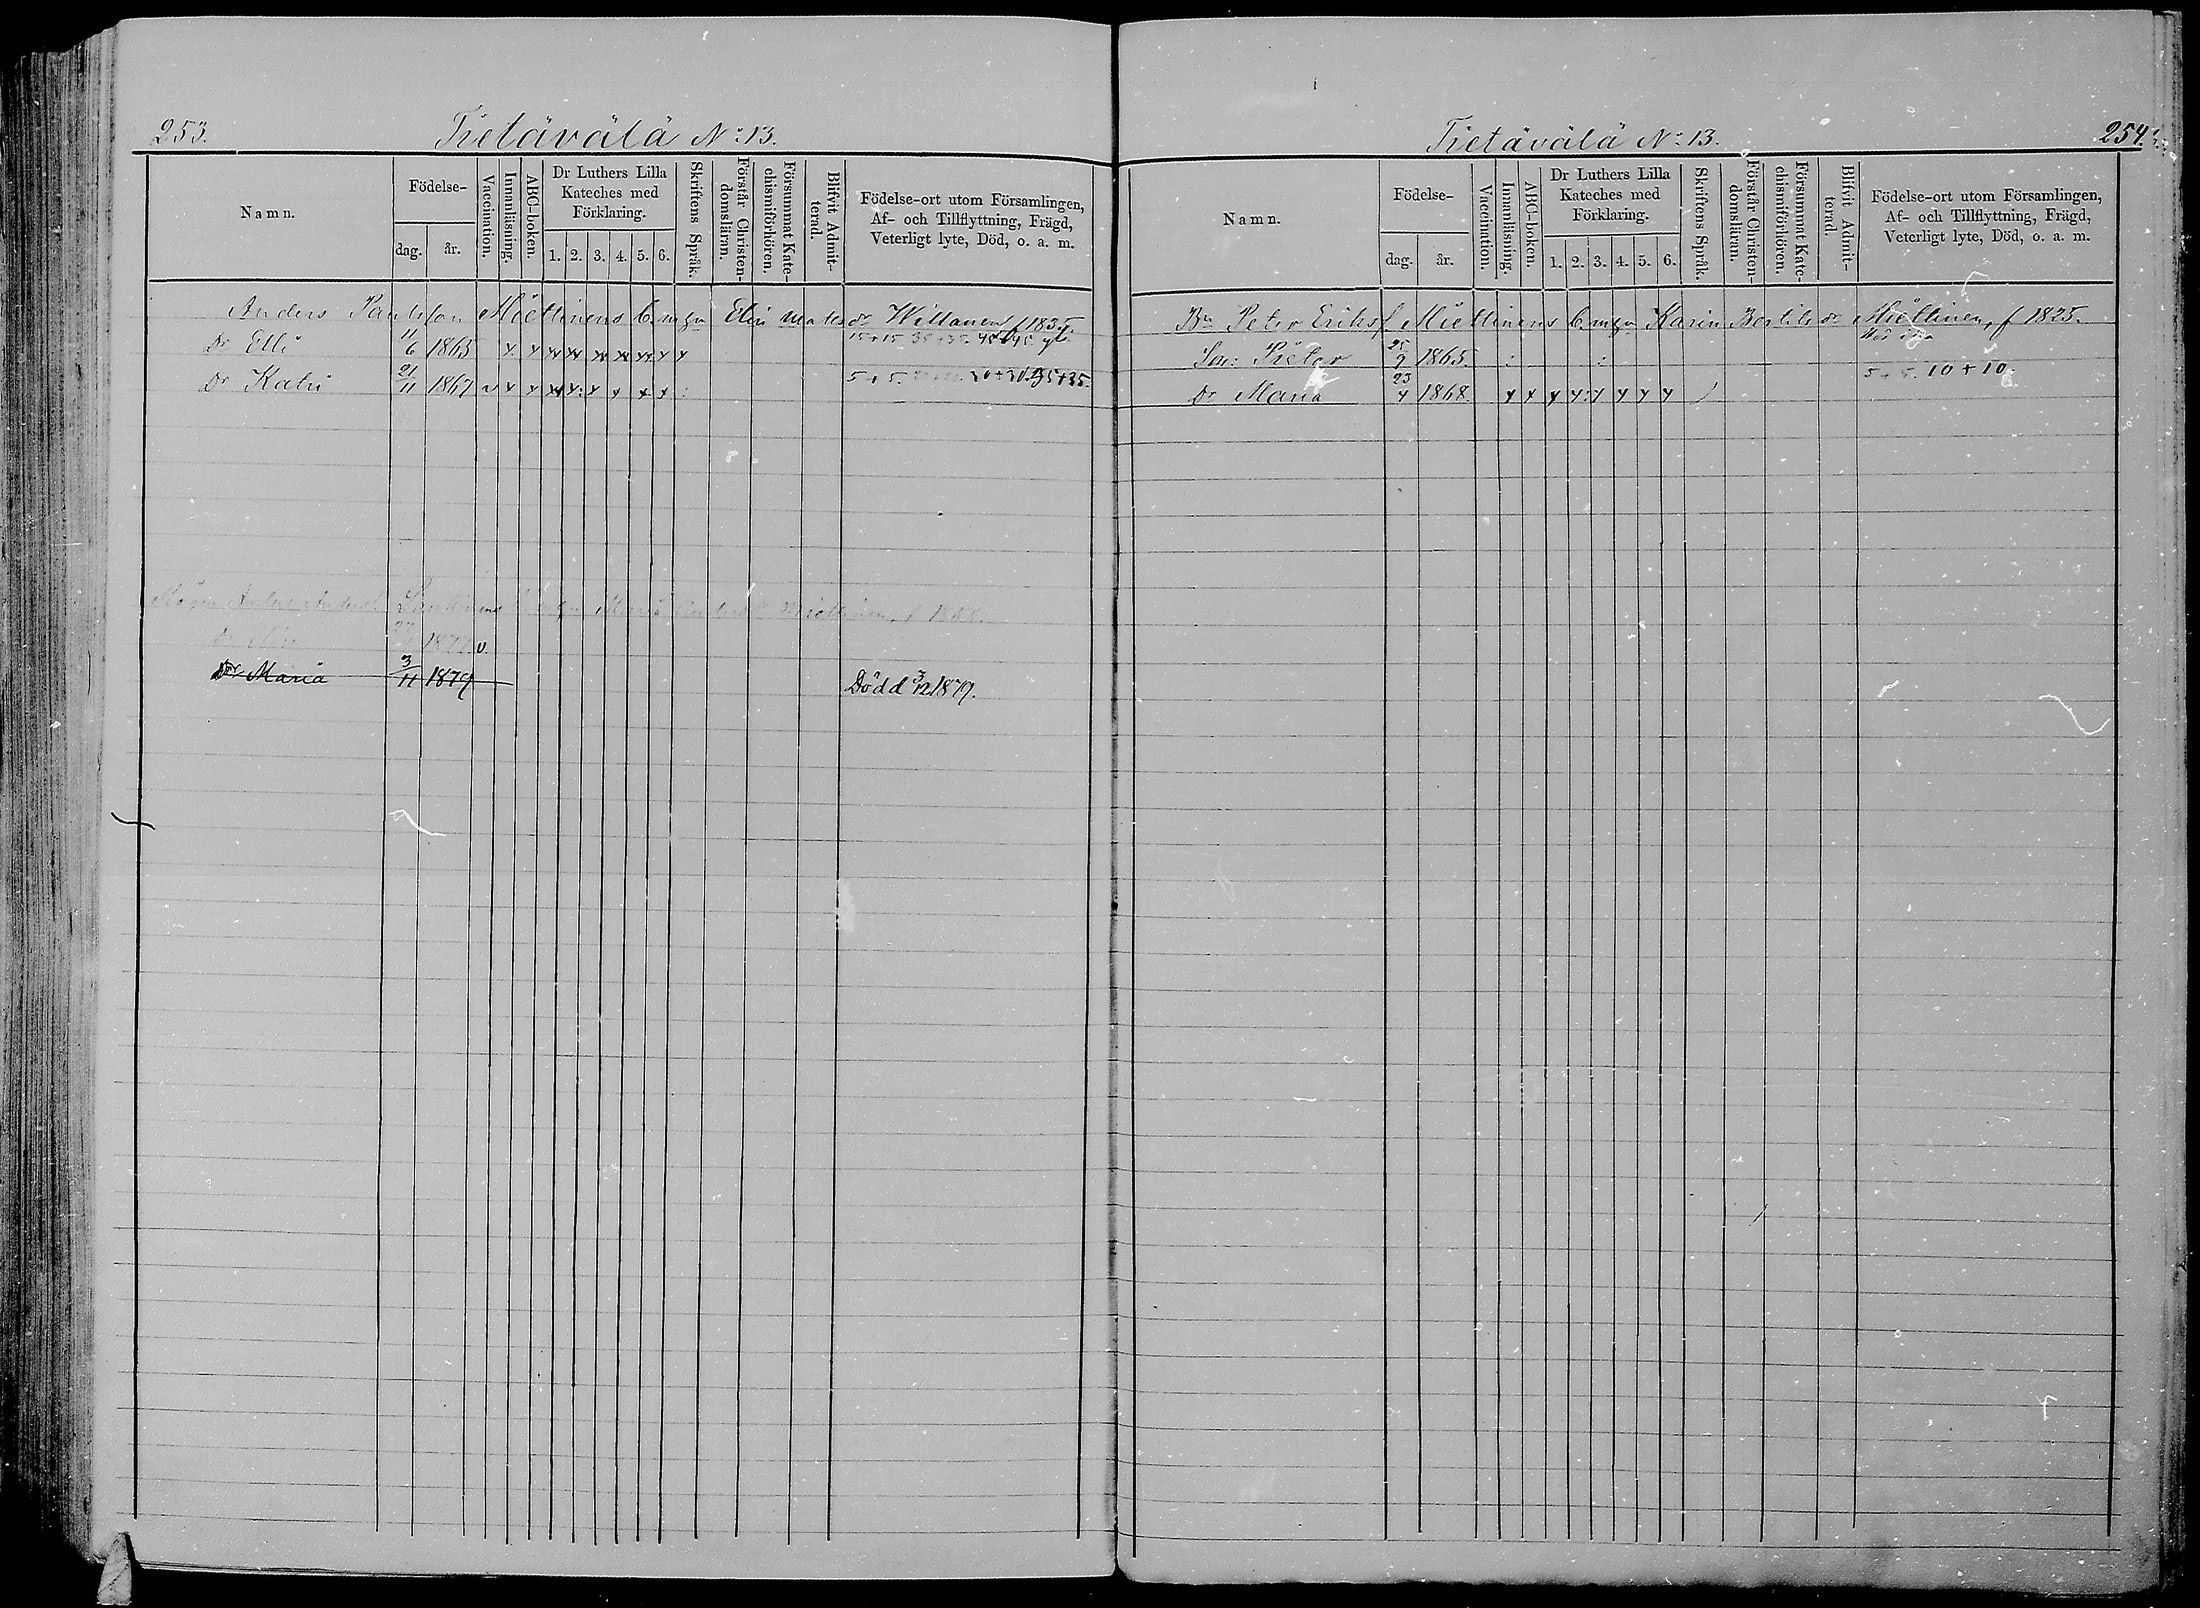 253.
Tietävälä No: 13.
Namn.
Födelse-
dag.
år.
Vaccination.
Innanläsning.
ABC-boken.
Dr Luthers Lilla
Kateches med
Förklaring.
1. 2. 3. 4. 5. 6.
Skriftens Språk.
Förstår Christen-
domsläran.
Försummat Kate-
chismiförhören.
Blifvit Admit-
terad.
Födelse-ort utom Församlingen,
Af- och Tillflyttning, Frägd,
Veterligt lyte, Död, o. a. m.
Anders Paulsson Miettinens Elin Willanen f 1835.
Dr Elli 11/6 1865 x x x x x x x x x 15+15 35+35. 45+45.
Dr Katri 21/11 1867 v x x x x : x x x x : 5+5. 30+30. 35+35.
Anders Anders Maria Anders Miettinen, f
1877 v.
Dr Maria 3/11 1879 Död d 3/12 1879.
Tietävälä No: 13.
254.
Namn.
Födelse-
dag.
år.
Vaccination.
Innanläsning.
ABC-boken.
Dr Luthers Lilla
Kateches med
Förklaring.
1. 2. 3. 4. 5. 6.
Skriftens Språk.
Förstår Christen-
domsläran.
Försummat Kate-
chismiförhören.
Blifvit Admit-
terad.
Födelse-ort utom Församlingen,
Af- och Tillflyttning, Frägd,
Veterligt lyte, Död, o. a. m.
Bn Peter Eriks f. Miettinens Karin Bertils dr Miettinen, f 1825.
Son: Pietar 25/9 1865. : :
Dr Maria 23/4 1868. x x x x : x x x x 5+5. 10+10.